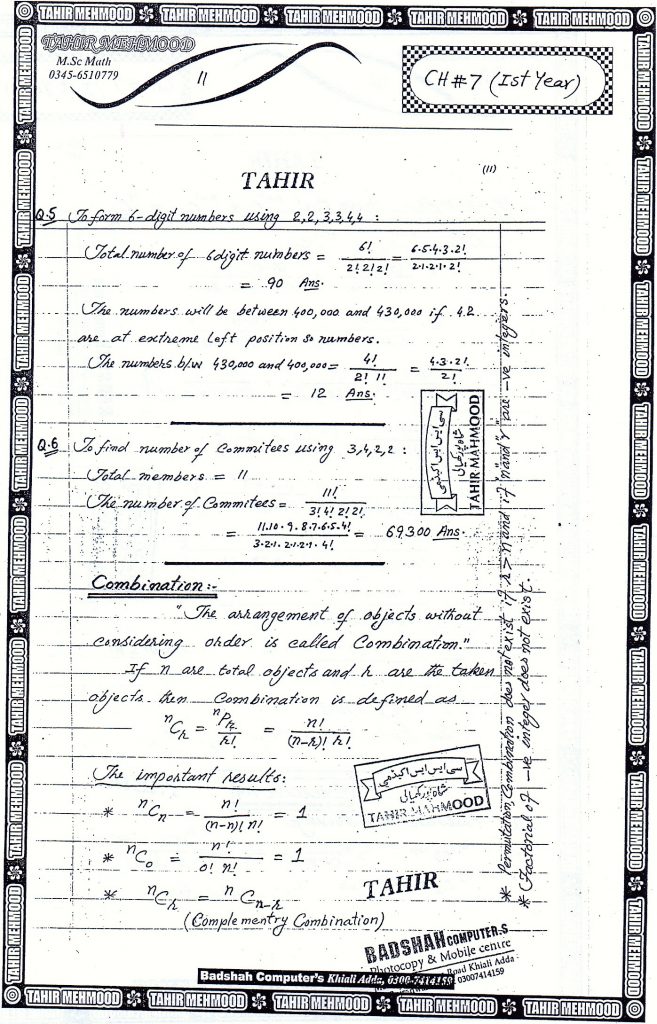 TAHIR MEHMOOD TAHIR MEHMOOD TAHIR MEHMOOD TAHIR MEHMOOD TAHIR MEHMOOD
TAHIR MEHMOOD
M.Sc Math
0345-6510779
11
CH#7 (Ist Year)
(11)
TAHIR
Q.5 To form 6-digit numbers using 2,2,3,3,4,4 :
Total number of 6digit numbers = 6!/2!2!2! = 6.5.4.3.2!/2.1.2.1.2!
= 90 Ans.
The numbers will be between 400,000 and 430,000 if 42
are at extreme left position so numbers.
The numbers b/w 430,000 and 400,000 = 4!/2! 1! = 4.3.2!/2!
= 12 Ans.
Q.6 To find number of Commitees using 3,4,2,2 :
Total members = 11
The number of Commitees = 11!/3!4!2!2!
= 11.10.9.8.7.6.5.4!/3.2.1.2.1.2.1.4! = 69300 Ans.
سی ایس ایس اکیڈمی
شاہ پور کھیالی
TAHIR MAHMOOD
Combination:-
"The arrangement of objects without
considering order is called Combination."
If n are total objects and r are the taken
objects then Combination is defined as
ⁿCᵣ = ⁿPᵣ/r! = n!/(n-r)! r!
The important results:
* ⁿCₙ = n!/(n-n)! n! = 1
* ⁿC₀ = n!/0! n! = 1
* ⁿCᵣ = ⁿCₙ₋ᵣ
(Complementry Combination)
* Permutation, Combination does not exist if r > n and if "n and r" are -ve integers.
* Factorial of -ve integer does not exist.
سی ایس ایس اکیڈمی
شاہ پور کھیالی
TAHIR MAHMOOD
TAHIR
BADSHAH COMPUTER,S
Photocopy & Mobile centre
Road Khiali Adda
03007414159
Badshah Computer's Khiali Adda, 0300-7414159
TAHIR MEHMOOD TAHIR MEHMOOD TAHIR MEHMOOD TAHIR MEHMOOD TAHIR MEHMOOD